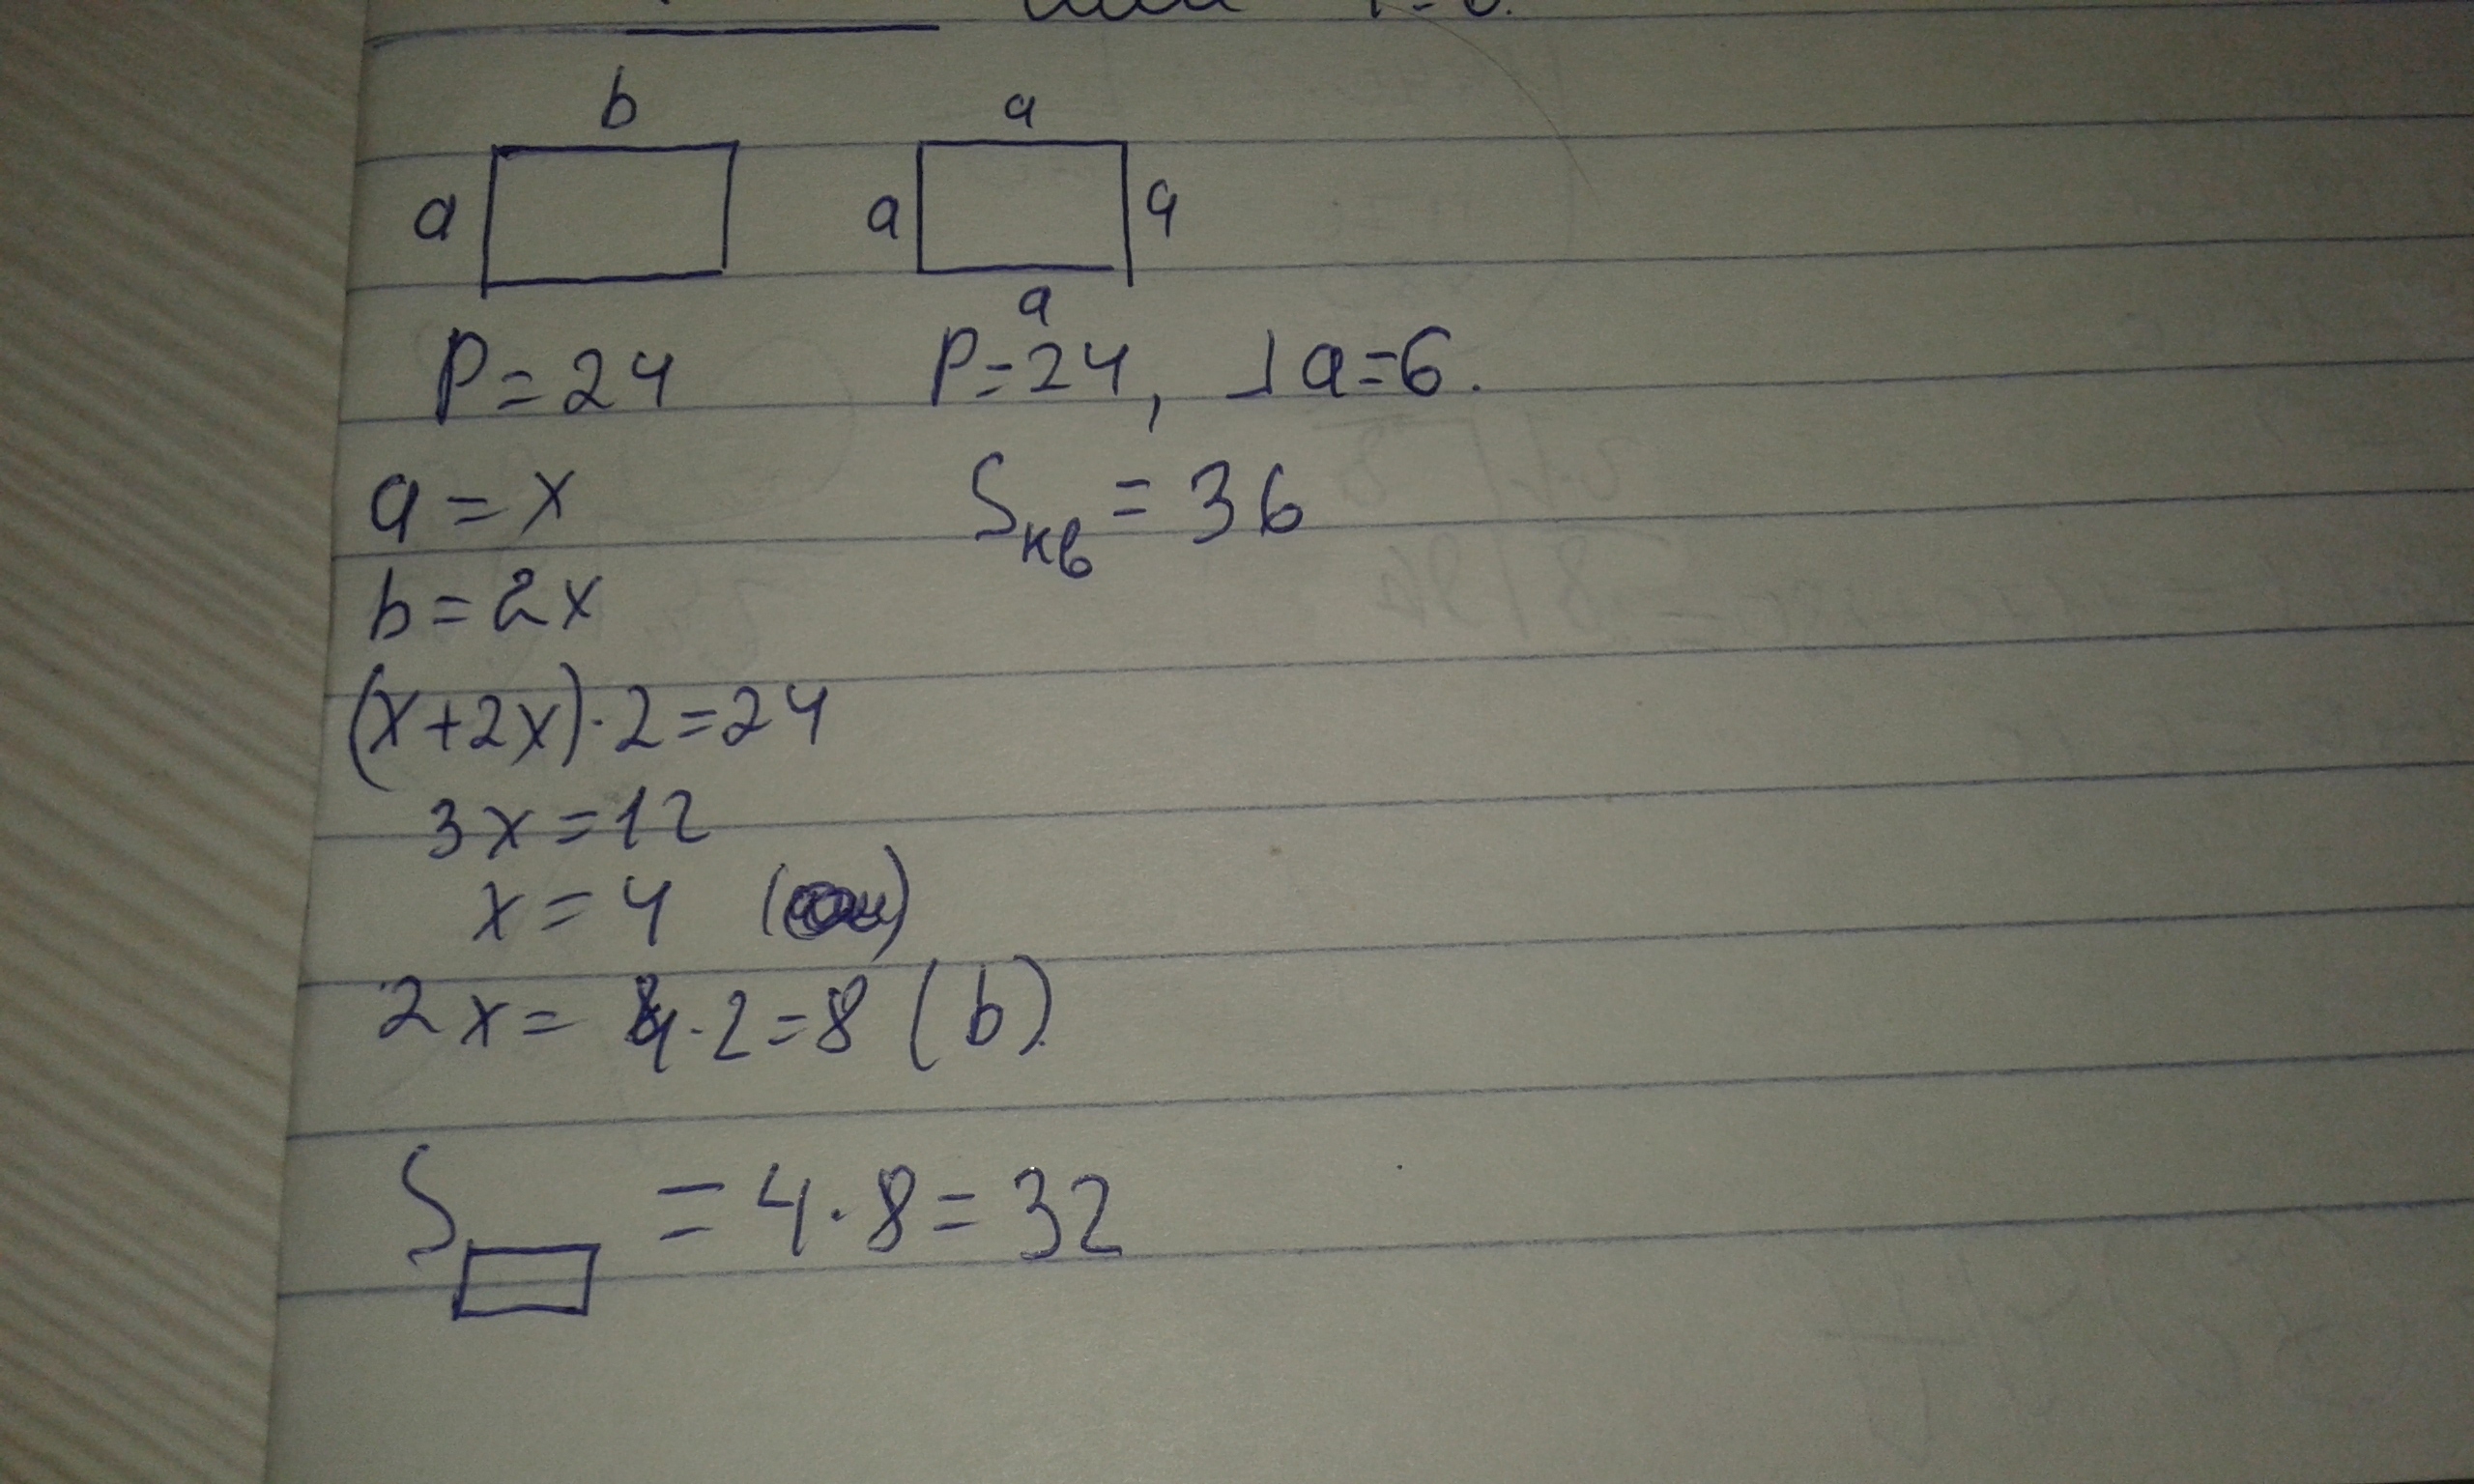 b a
a a a
a
P=24 P=24, a=6.
a=x Sкв=36
b=2x
(x+2x)·2=24
3x=12
x=4
2x=4·2=8 (b)
S▭ =4·8=32